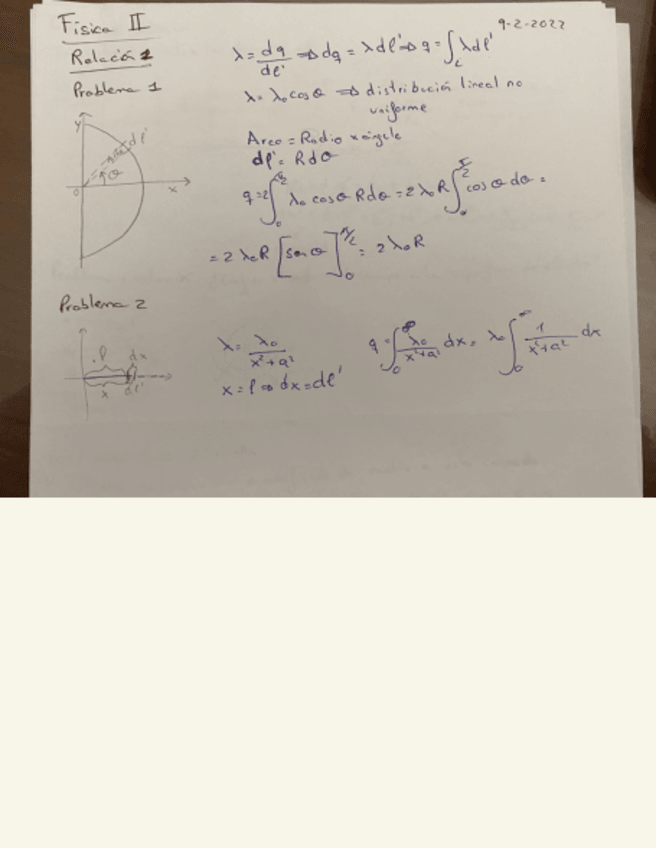 Física II
9-2-2022
Relación 1
λ = dq/dl' ⇒ dq = λdl' ⇒ q = ∫_L λdl'
Problema 1
λ = λ₀ cosθ ⇒ distribución lineal no
uniforme
y
dl'
θ
0
x
Arco = Radio x ángulo
dl' = Rdθ
q = 2∫₀^{π/2} λ₀ cosθ Rdθ = 2λ₀R∫₀^{π/2} cosθ dθ =
= 2λ₀R [senθ]₀^{π/2} = 2λ₀R
Problema 2
l dx
x dl'
λ = λ₀/(x²+a²)
q = ∫₀^∞ λ₀/(x²+a²) dx = λ₀∫₀^∞ 1/(x²+a²) dx
x = l ⇒ dx = dl'